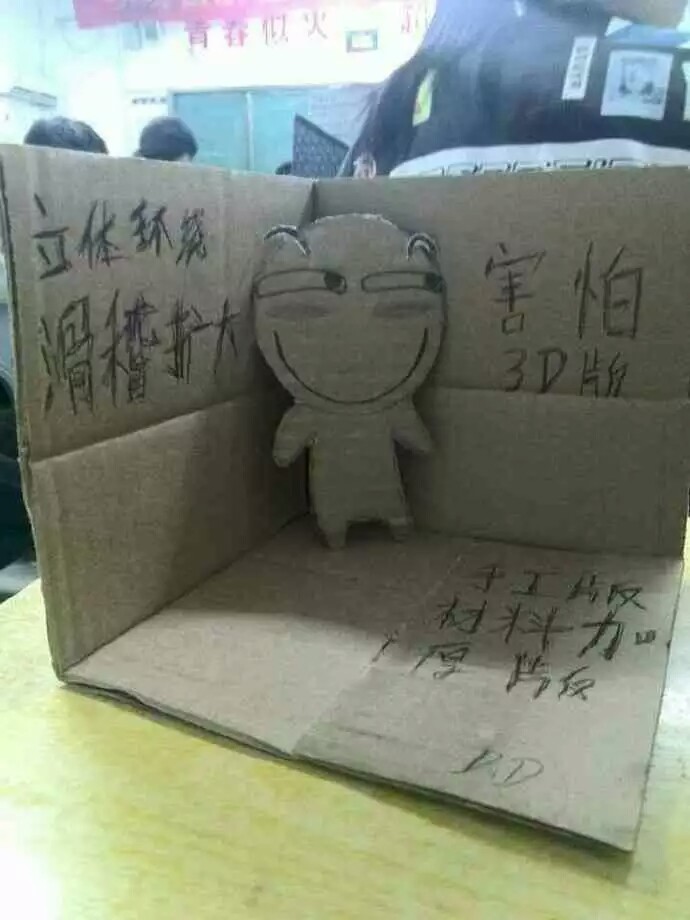 青春似火
立体环绕
滑稽扩大
害怕
3D版
手工版
材料加
厚版